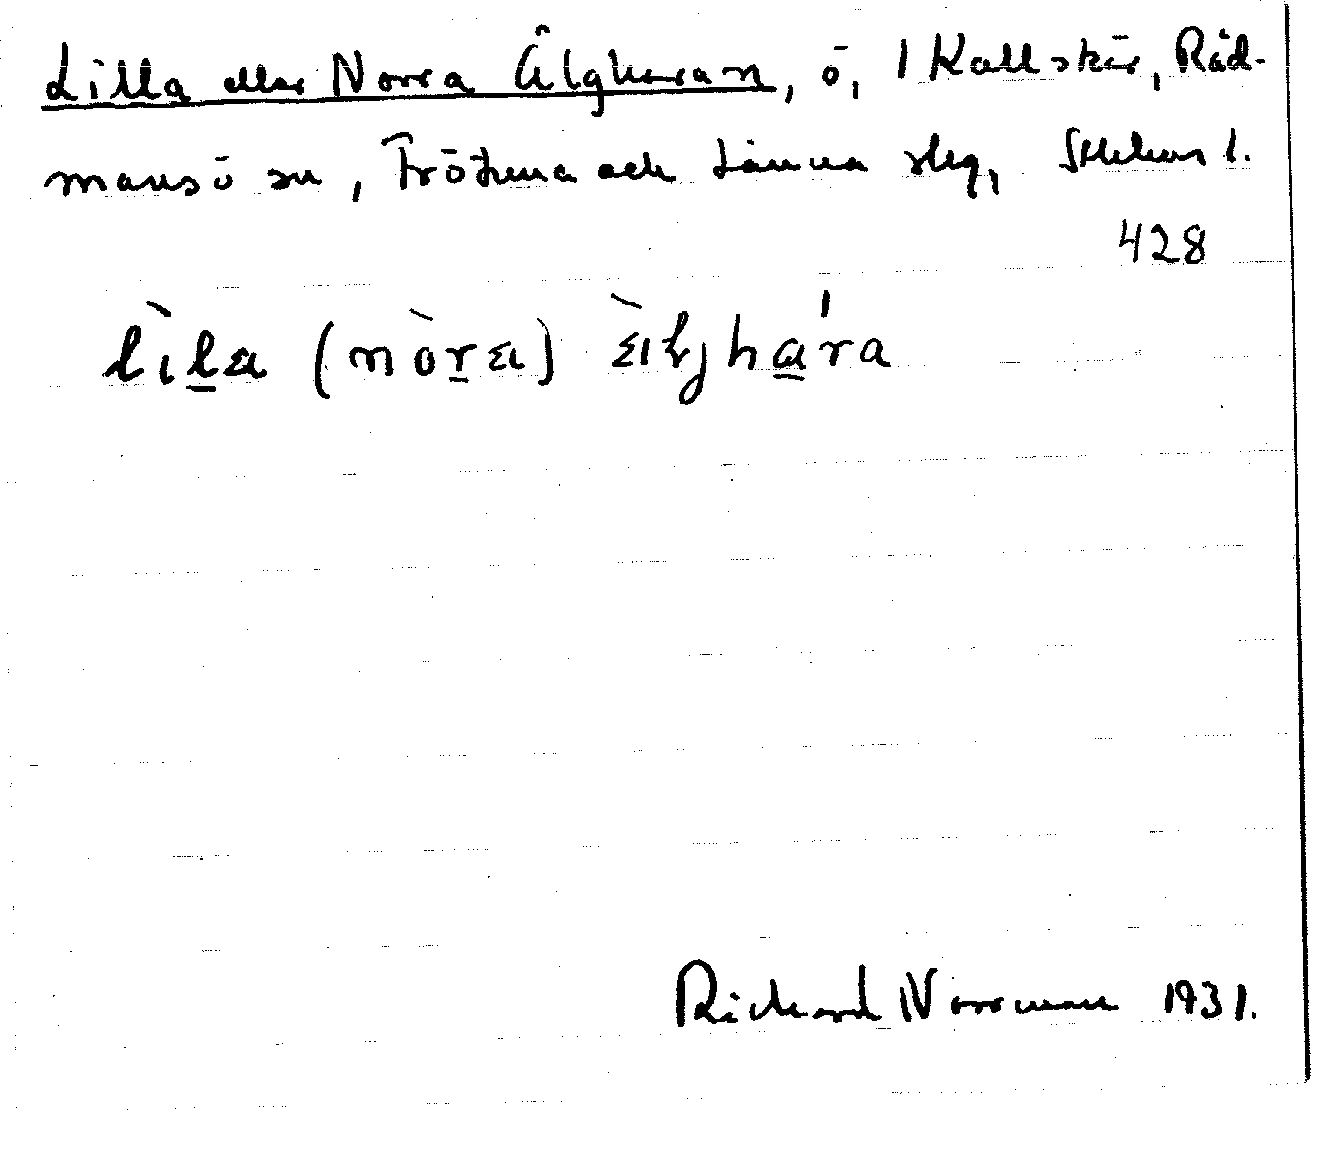 Lilla eller Norra Älgharan, ö, 1 Kallskär, Råd-
mansö sn, Frötuna och Länna slg, Sthlms l.
428
lìla (nòra) ä̀ljhára
Rickard Norrman 1931.